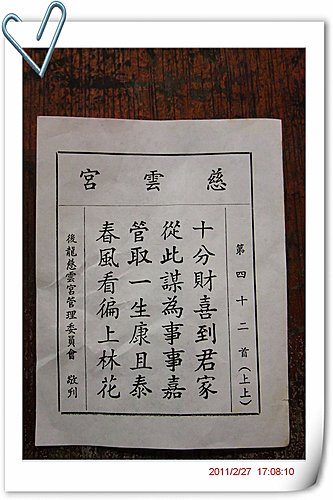 慈雲宮
第四十二首（上上）
十分財喜到君家
從此謀為事事嘉
管取一生康且泰
春風看徧上林花
後龍慈雲宮管理委員會 敬刋
2011/2/27 17:08:10